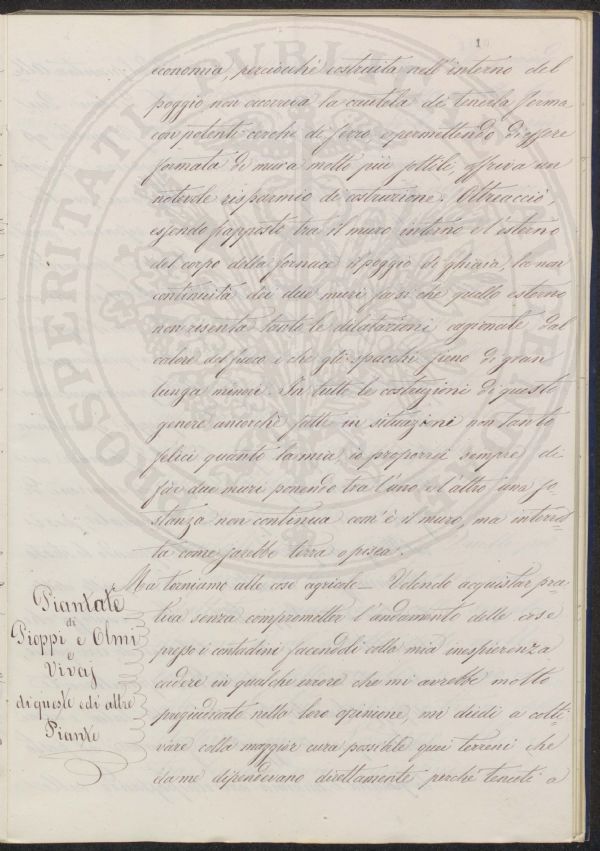 1
economia, perciocchè costruita nell'interno del
poggio non occorreva la cautela di tenerla ferma
con potenti cerchi di ferro, e permettendo d'essere
formata di mura molto più sottili, offriva un
notevole risparmio di costruzione. Oltreacciò,
essendo frapposto tra il muro interno e l'esterno
del corpo della fornace il poggio di ghiaia, la non
continuità dei due muri fa sì che quello esterno
non risenta tante le dilatazioni cagionate dal
calore del fuoco e che gli spacchi sieno di gran
lunga minori. In tutte le costruzioni di questo
genere ancorchè fatte in situazioni non tanto
felici quanto la mia, io proporrei sempre di
far due muri ponendo tra l'uno e l'altro una so-
stanza non continua com'è il muro, ma interrot-
ta come sarebbe terra o pisea.
Ma torniamo alle cose agricole_ Volendo acquistar pra-
tica senza compromettere l'andamento delle cose
presso i contadini facendoli colla mia inesperienza
cadere in qualche errore che mi avrebbe molto
pregiudicato nella loro opinione, mi diedi a colti-
vare colla maggior cura possibile quei terreni che
da me dipendevano direttamente perchè tenuti a
Piantate
di
Pioppi e Olmi
e
Vivaj
di queste ed altre
Piante
PROSPERITATI PUBLICAE